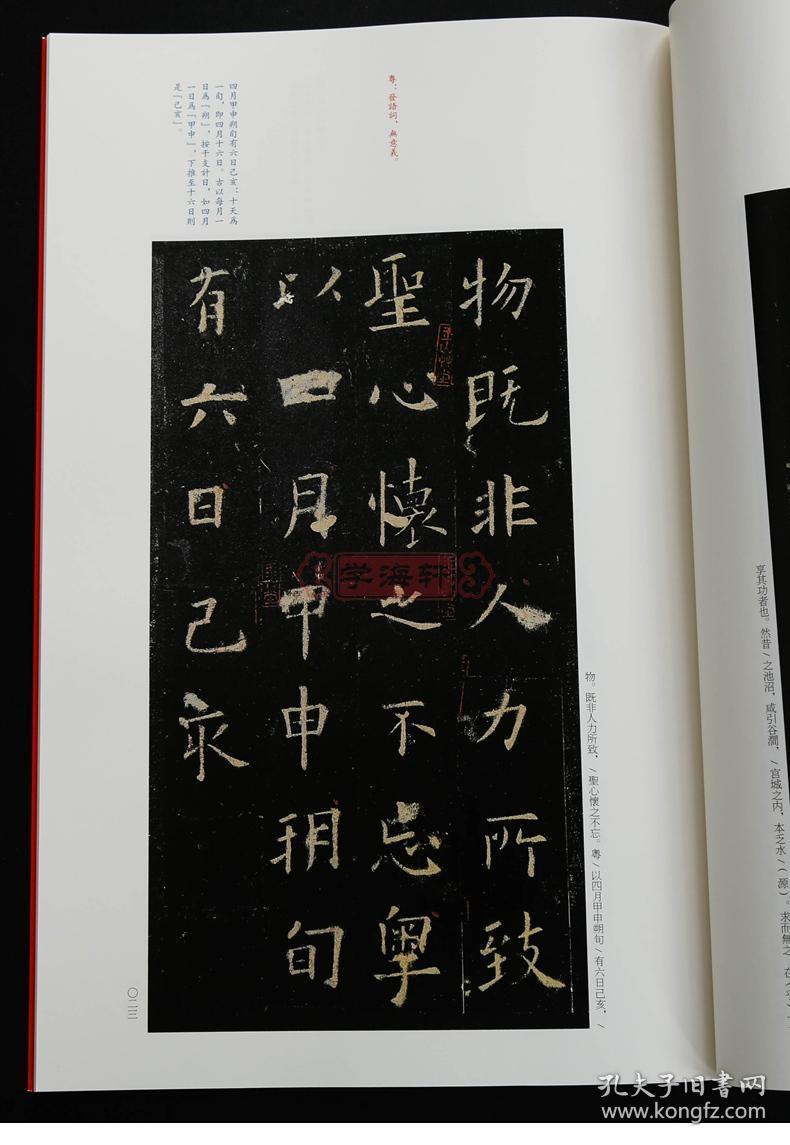 粵：發語詞，無意義。
四月甲申朔旬有六日己亥：十天爲
一旬，即四月十六日。古以每月一
日爲「朔」，按干支計日，如四月
一日爲「甲申」，下推至十六日則
是「己亥」。
物既非人力所致
聖心懷之不忘粵
以四月甲申朔旬
有六日己亥
学海轩
物。既非人力所致，/聖心懷之不忘。粵/以四月甲申朔旬/有六日己亥，/
〇二三
享其功者也。然昔/之池沼，咸引谷澗，/宮城之内，本乏水/(源)。求而無之
孔夫子旧书网
www.kongfz.com